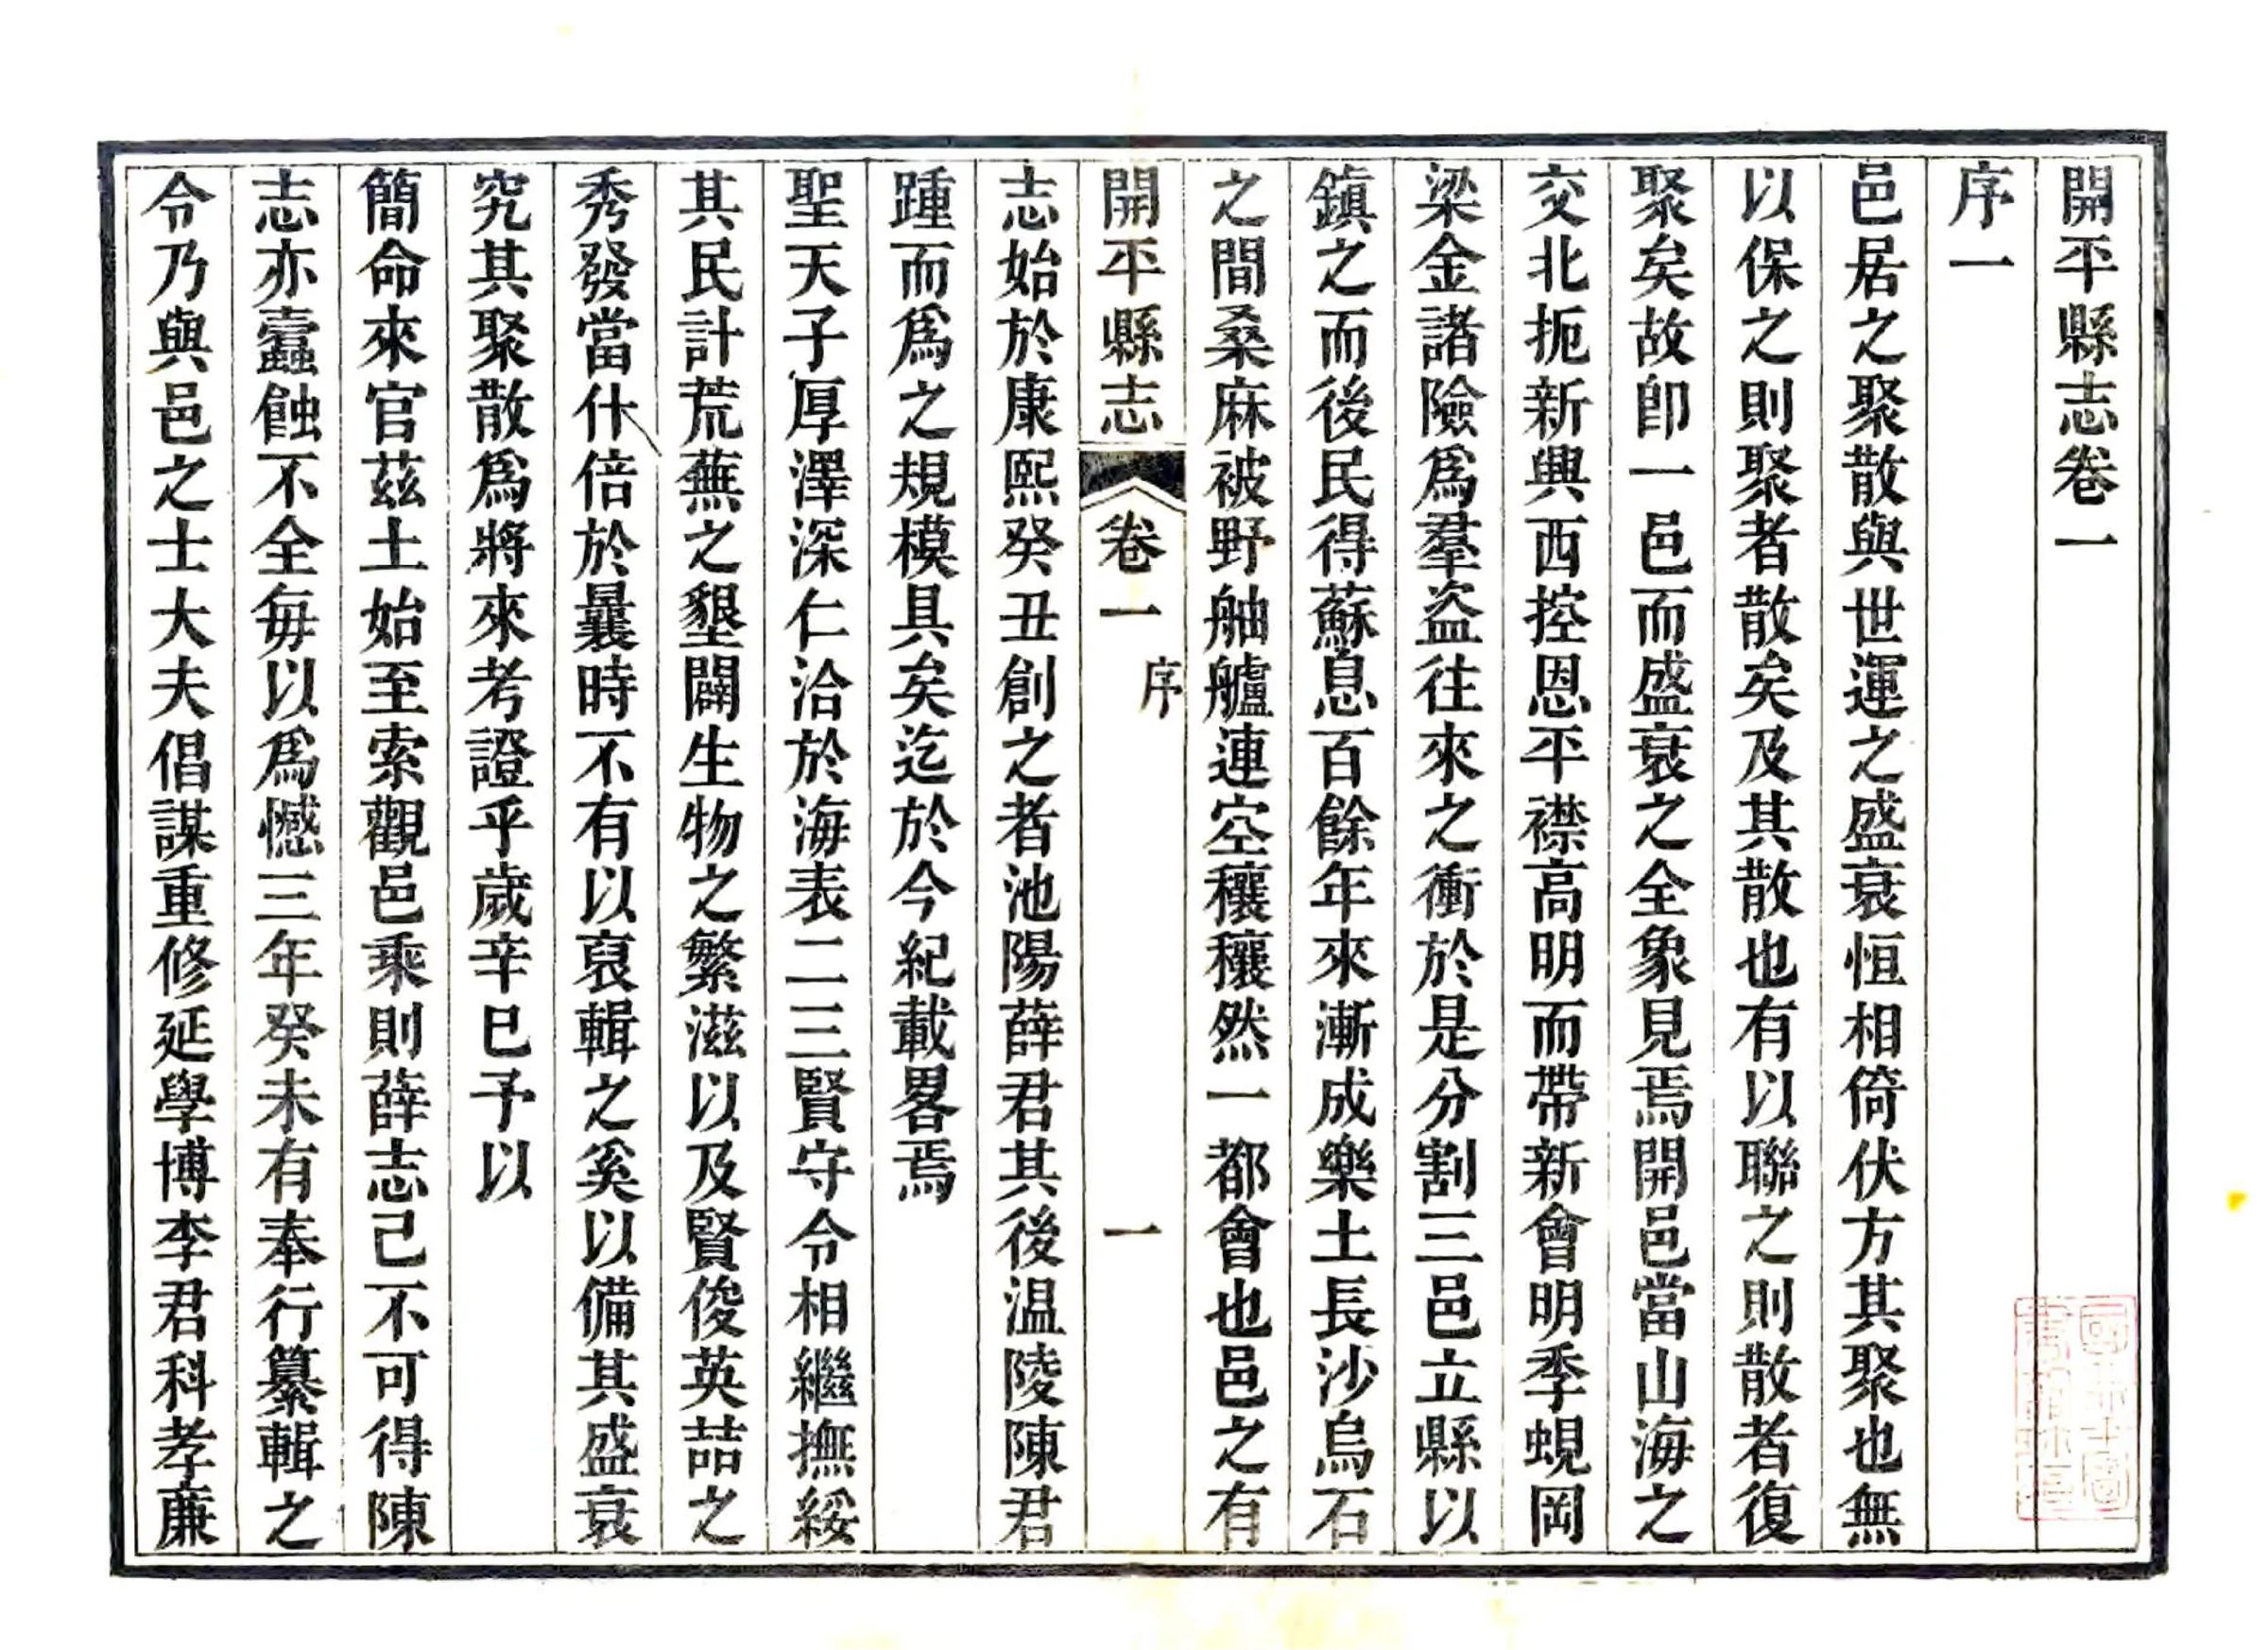 開平縣志卷一
序一
邑居之聚散與世運之盛衰恒相倚伏方其聚也無
以保之則聚者散矣及其散也有以聯之則散者復
聚矣故卽一邑而盛衰之全象見焉開邑當山海之
交北扼新興西控恩平襟高明而帶新會明季蜆岡
梁金諸險爲羣盜往來之衝於是分割三邑立縣以
鎭之而後民得蘇息百餘年來漸成樂土長沙烏石
之間桑麻被野舳艫連空穰穰然一都會也邑之有
開平縣志 卷一 序 一
志始於康熙癸丑創之者池陽薛君其後温陵陳君
踵而爲之規模具矣迄於今紀載畧焉
聖天子厚澤深仁洽於海表二三賢守令相繼撫綏
其民計荒蕪之墾闢生物之繁滋以及賢俊英喆之
秀發當什倍於曩時不有以裒輯之奚以備其盛衰
究其聚散爲將來考證乎歲辛巳予以
簡命來官茲土始至索觀邑乘則薛志己不可得陳
志亦蠧蝕不全每以爲憾三年癸未有奉行纂輯之
令乃與邑之士大夫倡謀重修延學博李君科孝廉